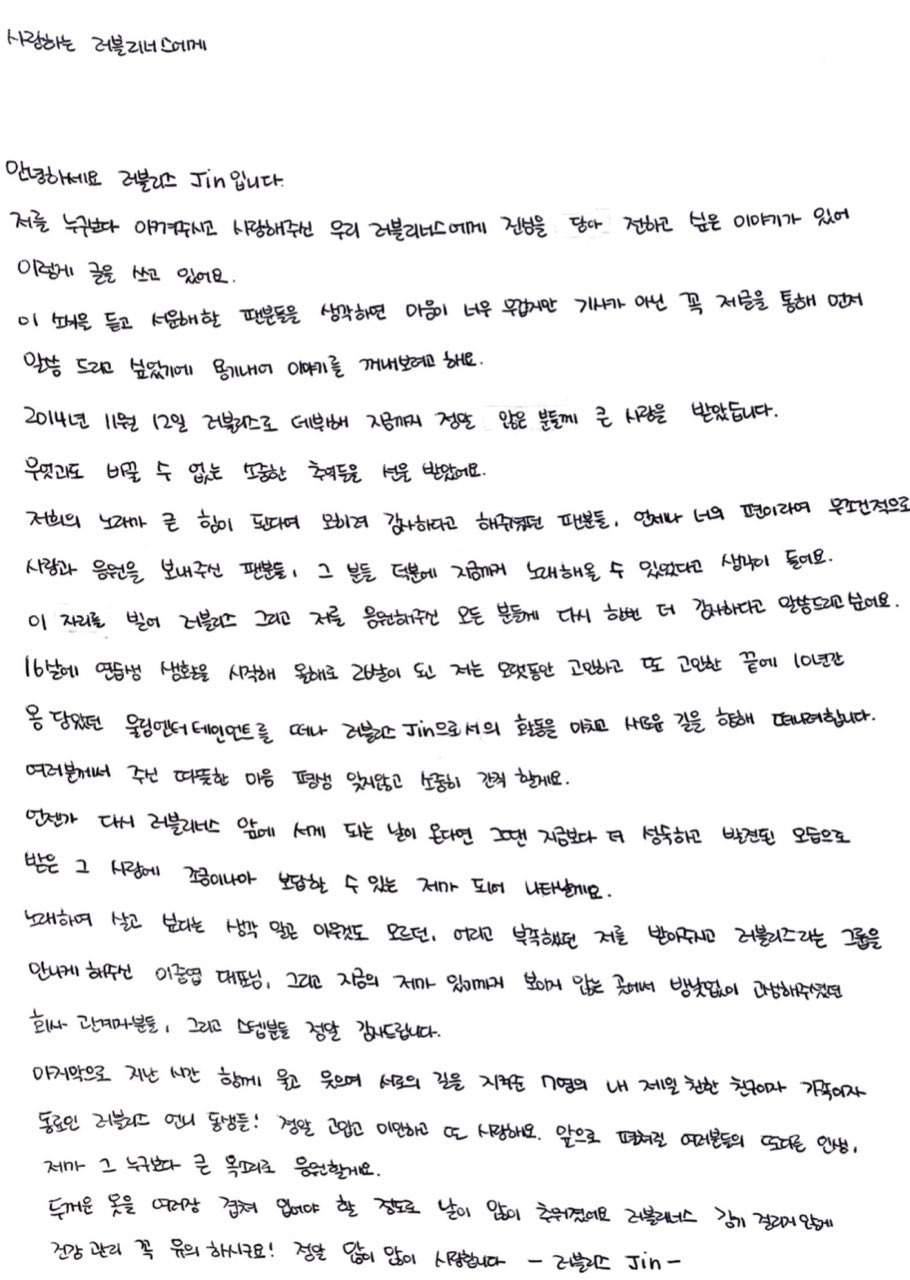 사랑하는 러블리너스에게
안녕하세요 러블리즈 Jin입니다.
저를 누구보다 아껴주시고 사랑해주신 우리 러블리너스에게 진심을 담아 전하고 싶은 이야기가 있어
이렇게 글을 쓰고 있어요.
이 소식을 듣고 서운해할 팬분들을 생각하면 마음이 너무 무겁지만 기사가 아닌 꼭 저글을 통해 먼저
말씀 드리고 싶었기에 용기내어 이야기를 꺼내보려고 해요.
2014년 11월 12일 러블리즈로 데뷔해 지금까지 정말 많은 분들께 큰 사랑을 받았습니다.
무엇과도 바꿀 수 없는 소중한 추억들을 선물 받았어요.
저희의 노래가 큰 힘이 된다며 오히려 감사하다고 해주셨던 팬분들, 언제나 너의 편이라며 무조건적으로
사랑과 응원을 보내주신 팬분들, 그 분들 덕분에 지금까지 노래해올 수 있었다고 생각이 들어요.
이 자리를 빌어 러블리즈 그리고 저를 응원해주신 모든 분들께 다시 한번 더 감사하다고 말씀드리고싶어요.
16살에 연습생 생활을 시작해 올해로 26살이 된 저는 오랫동안 고민하고 또 고민한 끝에 10년간
몸 담았던 울림엔터테인먼트를 떠나 러블리즈 Jin으로서의 활동을 마치고 새로운 길을 향해 떠나려합니다.
여러분께서 주신 따뜻한 마음 평생 잊지않고 소중히 간직 할게요.
언젠가 다시 러블리너스 앞에 서게 되는 날이 온다면 그땐 지금보다 더 성숙하고 발전된 모습으로
받은 그 사랑에 조금이나마 보답할 수 있는 제가 되어 나타날게요.
노래하며 살고 싶다는 생각 말곤 아무것도 모르던, 어리고 부족했던 저를 받아주시고 러블리즈라는 그룹을
만나게 해주신 이중엽 대표님, 그리고 지금의 제가 있기까지 보이지 않는 곳에서 밤낮없이 고생해주셨던
회사 관계자분들, 그리고 스텝분들 정말 감사드립니다.
마지막으로 지난 시간 함께 울고 웃으며 서로의 길을 지켜준 7명의 내 제일 친한 친구이자 가족이자
동료인 러블리즈 언니 동생들! 정말 고맙고 미안하고 또 사랑해요. 앞으로 펼쳐질 여러분들의 또다른 인생,
제가 그 누구보다 큰 목소리로 응원할게요.
두꺼운 옷을 여러장 겹쳐 입어야 할 정도로 날이 많이 추워졌어요 러블리너스 감기 걸리지 않게
건강 관리 꼭 유의 하시구요! 정말 많이 많이 사랑합니다 - 러블리즈 Jin -